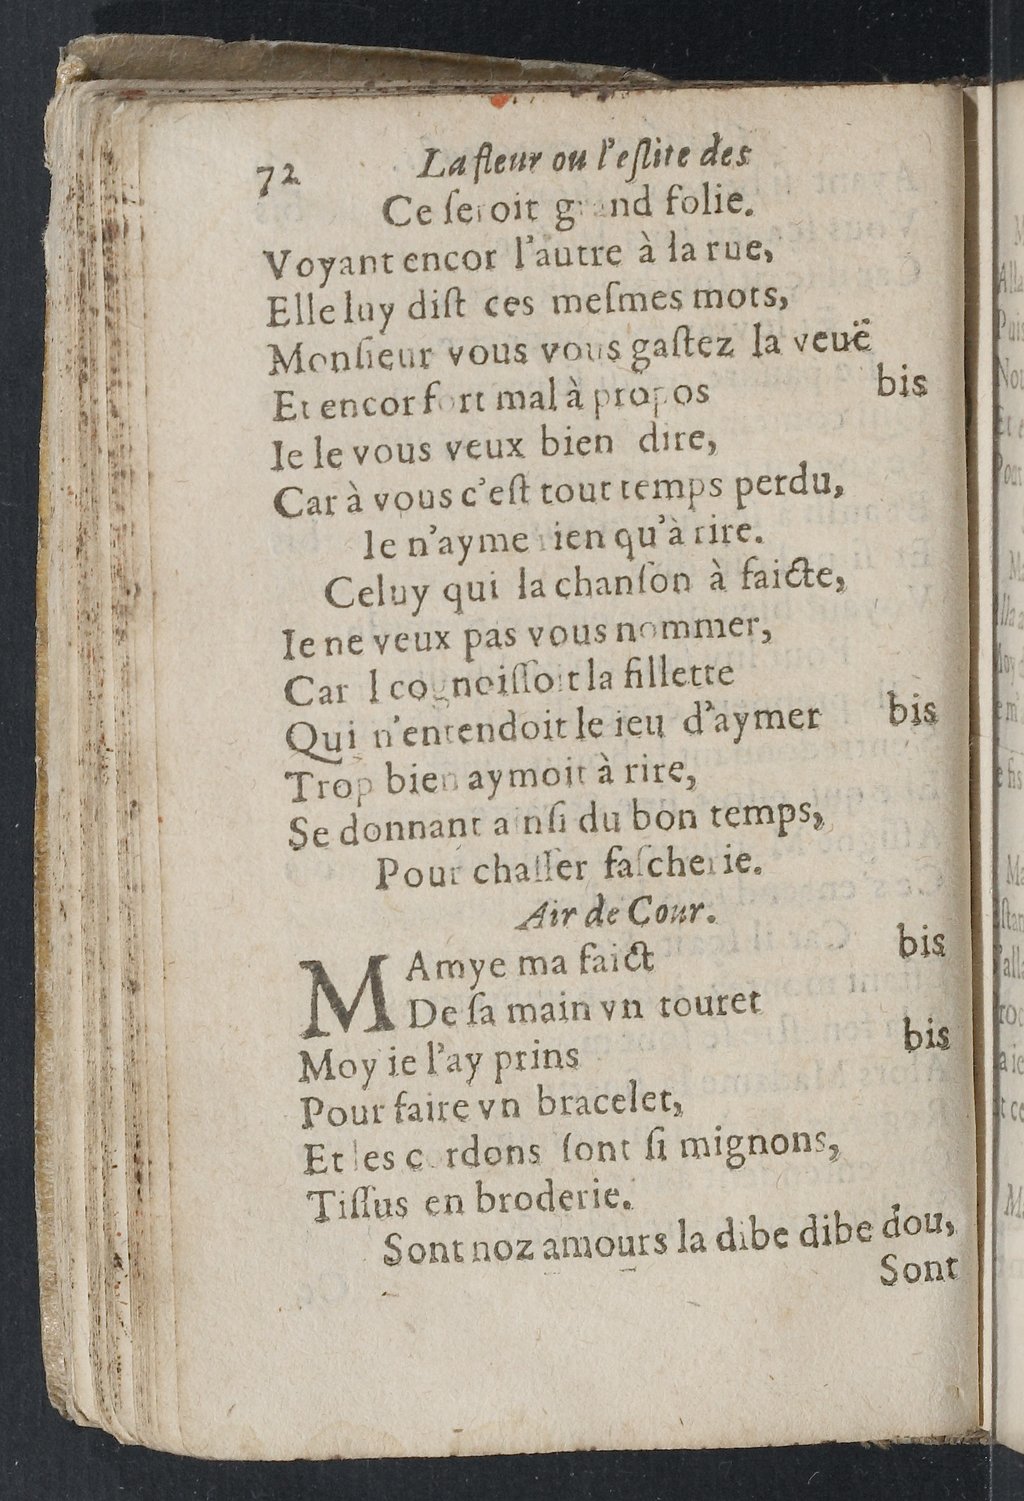 72 La fleur ou l'eſlite des
Ce ſeroit grand folie.
Voyant encor l'autre à la rue,
Elle luy diſt ces meſmes mots,
Monſieur vous vous gaſtez la veuë
Et encor fort mal à propos bis
Ie le vous veux bien dire,
Car à vous c'eſt tout temps perdu,
Ie n'ayme rien qu'à rire.
Celuy qui la chanſon à faicte,
Ie ne veux pas vous nommer,
Car l cognoiſſoit la fillette
Qui n'entendoit le ieu d'aymer bis
Trop bien aymoit à rire,
Se donnant ainſi du bon temps,
Pour chaſſer faſcherie.
Air de Cour.
MAmye ma faict bis
De ſa main vn touret
Moy ie l'ay prins bis
Pour faire vn bracelet,
Et les cordons ſont ſi mignons,
Tiſſus en broderie.
Sont noz amours la dibe dibe dou,
Sont